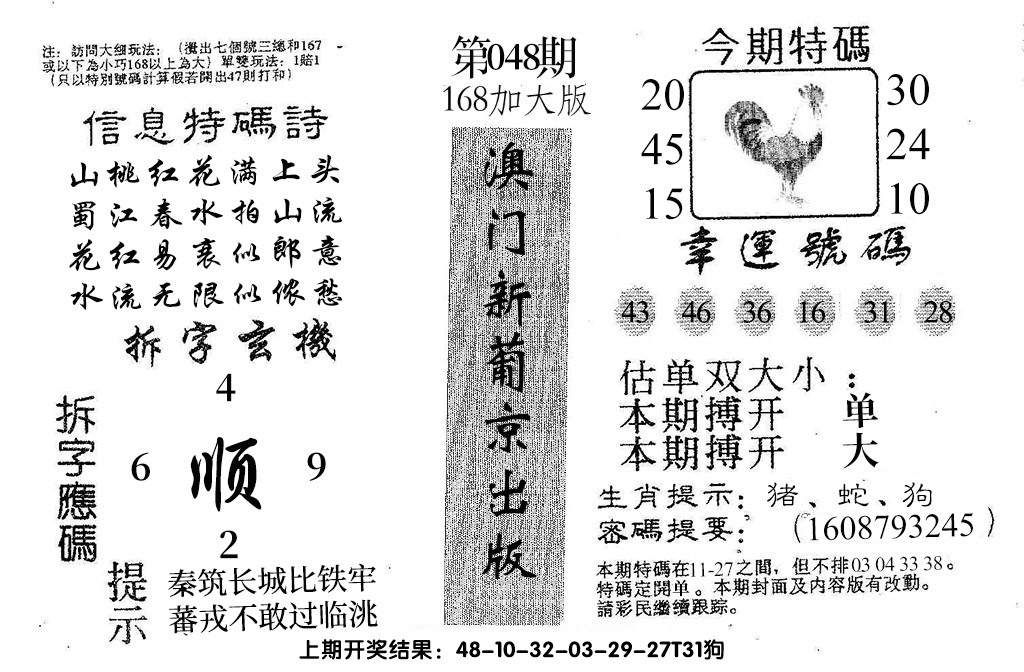 注：訪問大细玩法：（攪出七個號三總和167
或以下為小巧168以上為大）單雙玩法：1賠1
（只以特別號碼計算假若開出47則打和）
信息特碼詩
山桃红花满上头
蜀江春水拍山流
花红易衰似郎意
水流无限似侬愁
拆字玄機
拆字應碼
4
6 顺 9
2
提示
秦筑长城比铁牢
蕃戎不敢过临洮
第048期
168加大版
澳门新葡京出版
今期特碼
20 30
45 24
15 10
幸運號碼
43 46 36 16 31 28
估单双大小：
本期搏开 单
本期搏开 大
生肖提示：猪、蛇、狗
密碼提要：（1608793245）
本期特碼在11-27之間，但不排03 04 33 38。
特碼定開单。本期封面及内容版有改動。
請彩民繼續跟踪。
上期开奖结果：48-10-32-03-29-27T31狗